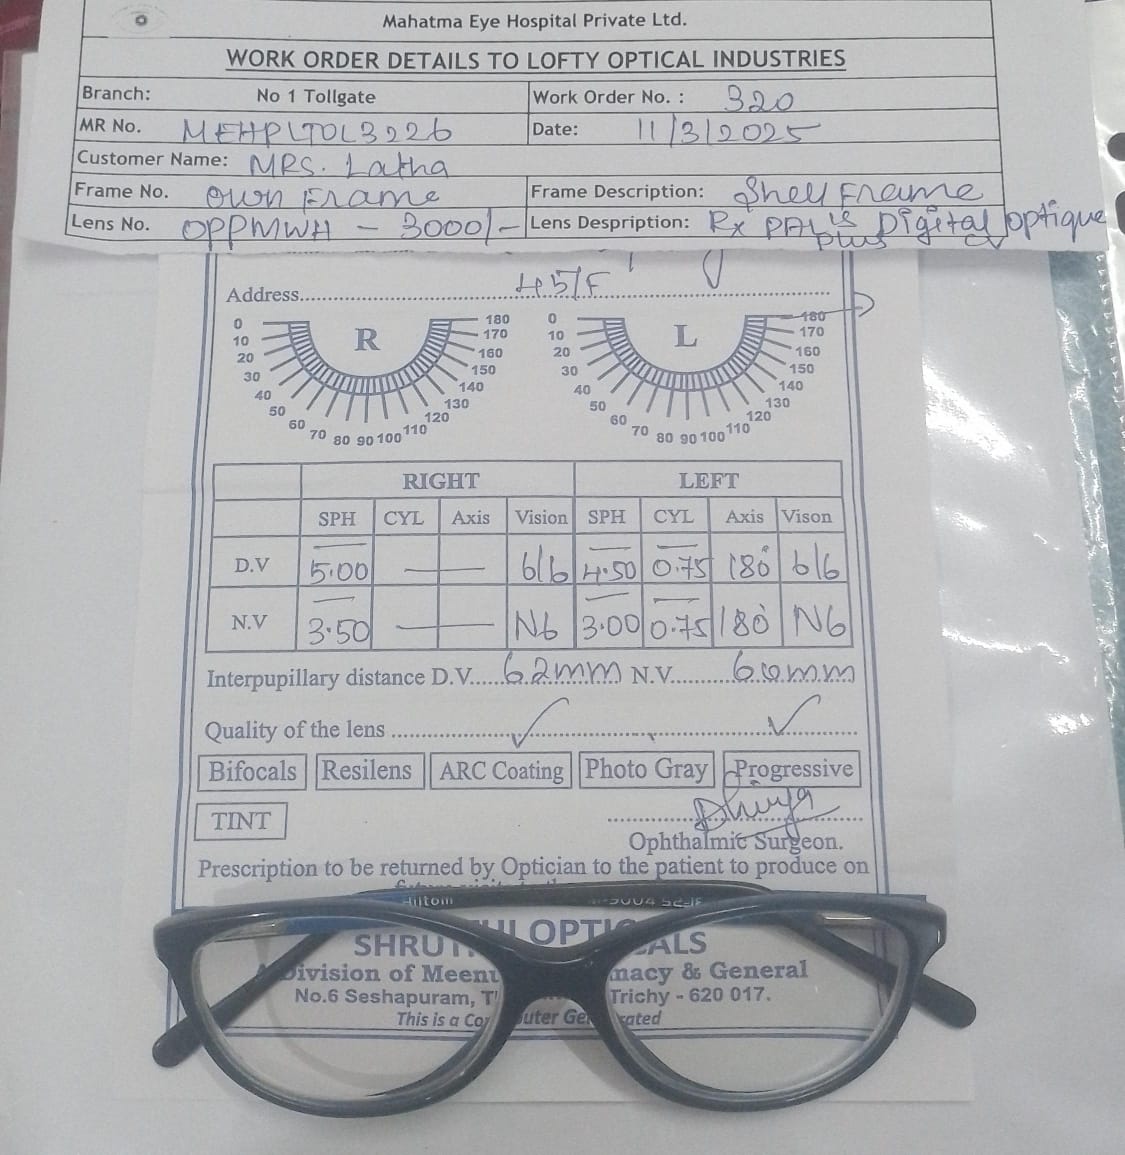 Mahatma Eye Hospital Private Ltd.
WORK ORDER DETAILS TO LOFTY OPTICAL INDUSTRIES
Branch: No 1 Tollgate Work Order No. : 320
MR No. MEHPLTOL3226 Date: 11/3/2025
Customer Name: MRS. Latha
Frame No. Own Frame Frame Description: Shell Frame
Lens No. OPPMWH - 3000/- Lens Despription: Rx PAL's Digital optique
plus
Address 45/F
R L
0 10 20 30 40 50 60 70 80 90 100 110 120 130 140 150 160 170 180
0 10 20 30 40 50 60 70 80 90 100 110 120 130 140 150 160 170 180
RIGHT LEFT
SPH CYL Axis Vision SPH CYL Axis Vison
D.V -5.00 — — 6/6 -4.50 -0.75 180° 6/6
N.V -3.50 — — N6 -3.00 -0.75 180° N6
Interpupillary distance D.V.....62mm N.V..........60mm
Quality of the lens
Bifocals Resilens ARC Coating Photo Gray Progressive
TINT
Ophthalmic Surgeon.
Prescription to be returned by Optician to the patient to produce on
SHRUTHI OPTICALS
Division of Meenu macy & General
No.6 Seshapuram, Trichy - 620 017.
This is a Computer Generated